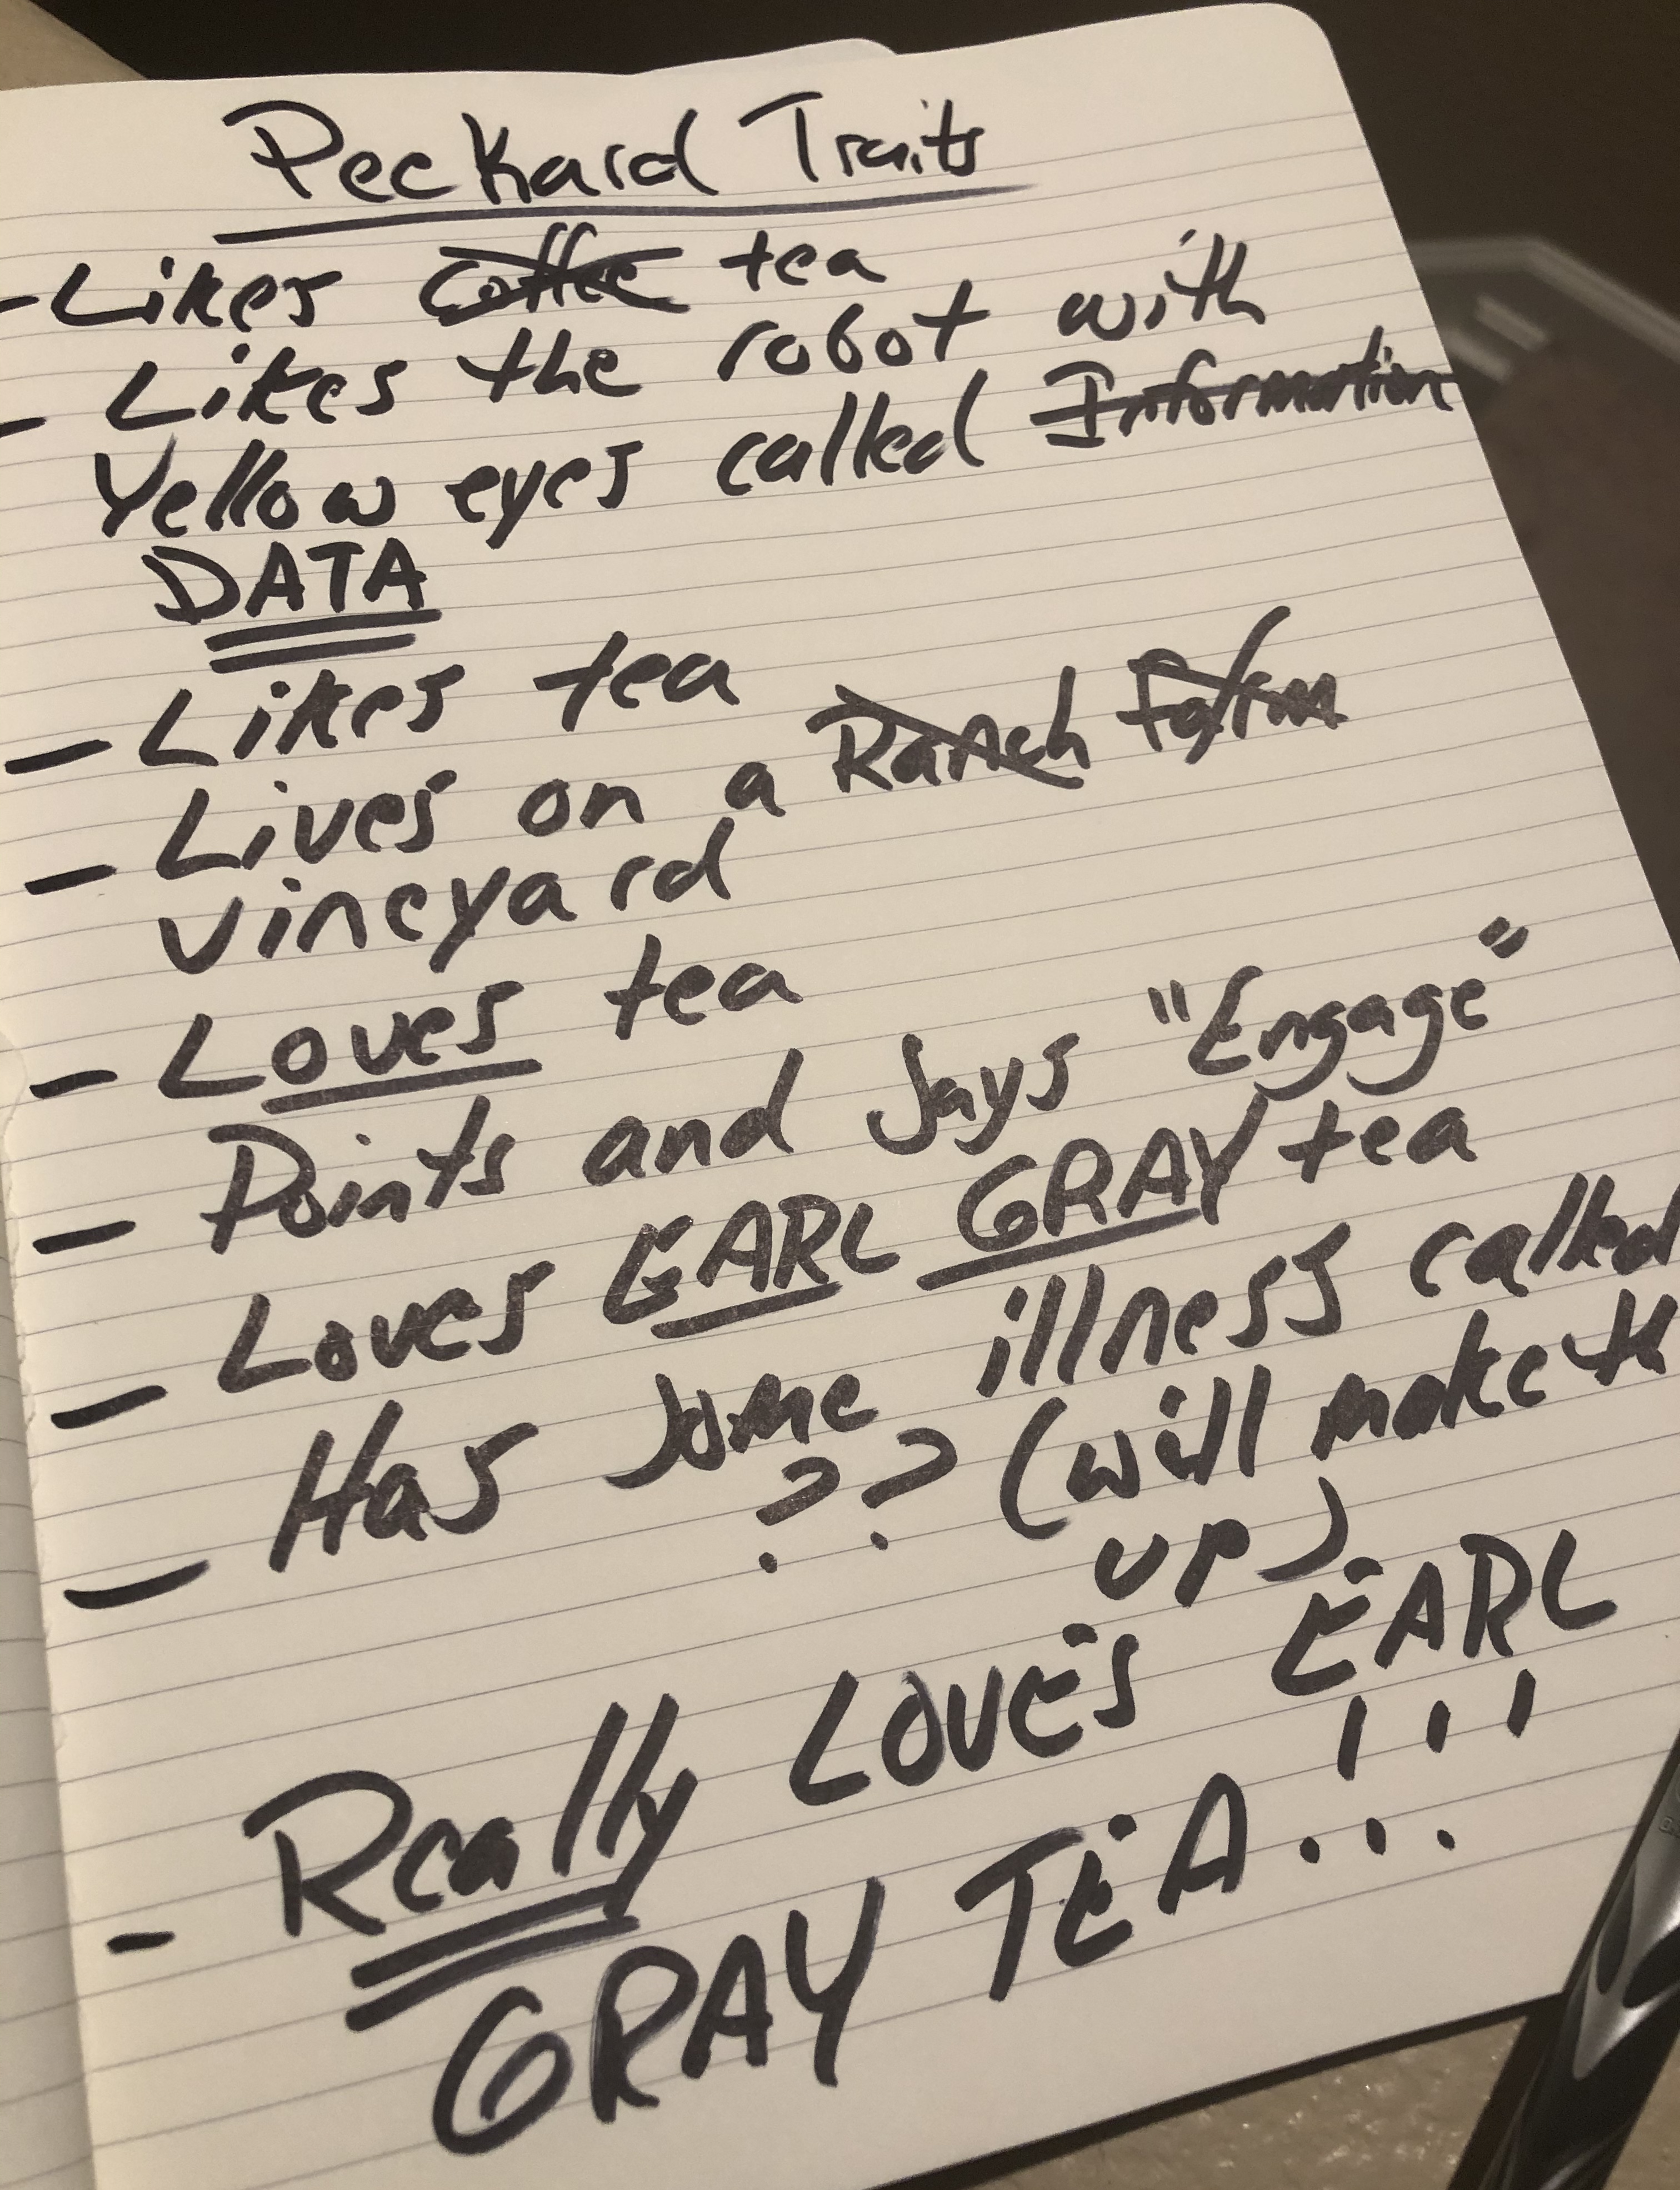 Peckard Traits
- Likes coffee tea
- Likes the robot with
Yellow eyes called Information
DATA
- Likes tea
- Lives on a Ranch Farm
vineyard
- Loves tea
- Points and says "Engage"
- Loves EARL GRAY tea
- Has some illness called
?? (will make th
up)
- Really LOVES EARL
GRAY TEA!!!